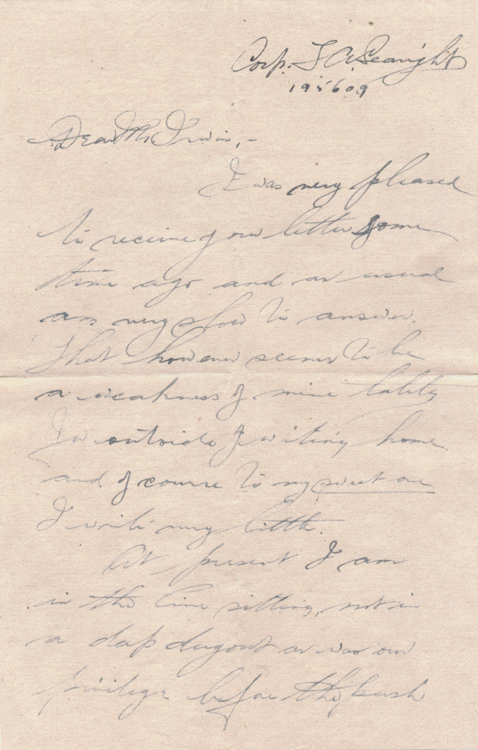 Corp. L A Searight
195609
Dear Mr Irwin, -
I was very pleased
to receive your letter some
time ago and as usual
am very slow to answer.
That however seems to be
a weakness of mine lately
for outside of writing home
and of course to my sweet one
I write very little.
At present I am
in the line sitting, not in
a deep dugout as was our
privilege before the push